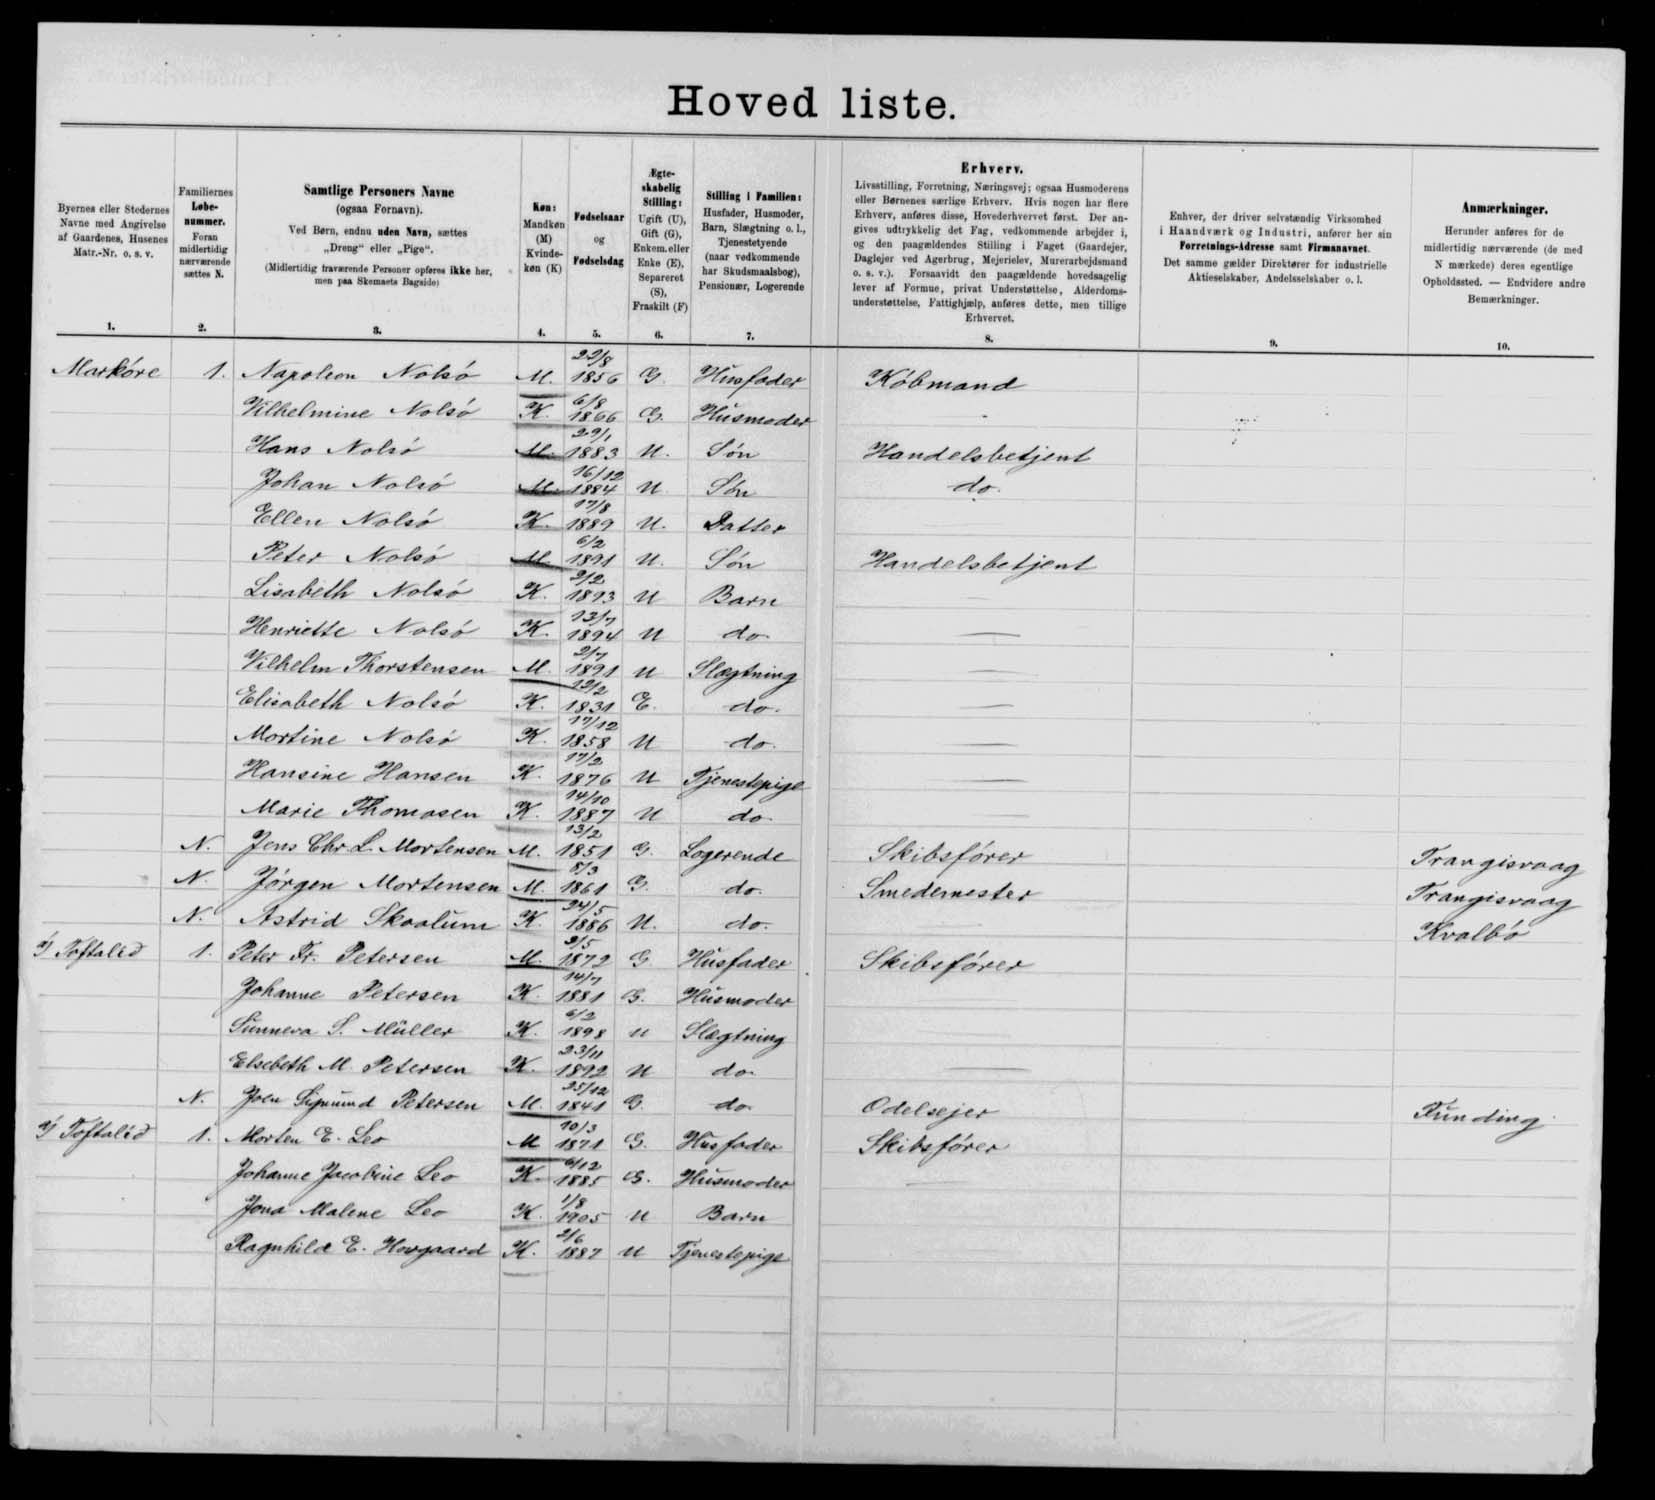 Hoved liste.
Byernes eller Stedernes
Navne med Angivelse
af Gaardenes, Husenes
Matr.-Nr. o. s. v.
1.
Familiernes
Løbe-
nummer.
Foran
midlertidig
nærværende
sættes N.
2.
Samtlige Personers Navne
(ogsaa Fornavn).
Ved Børn, endnu uden Navn, sættes
„Dreng“ eller „Pige“.
(Midlertidig fraværende Personer opføres ikke her,
men paa Skemaets Bagside)
3.
Køn:
Mandkøn
(M)
Kvinde-
køn (K)
4.
Fødselsaar
og
Fødselsdag
5.
Ægte-
skabelig
Stilling:
Ugift (U),
Gift (G),
Enkem. eller
Enke (E),
Separeret
(S),
Fraskilt (F)
6.
Stilling i Familien:
Husfader, Husmoder,
Barn, Slægtning o. l.,
Tjenestetyende
(naar vedkommende
har Skudsmaalsbog),
Pensionær, Logerende
7.
Erhverv.
Livsstilling, Forretning, Næringsvej; ogsaa Husmoderens
eller Børnenes særlige Erhverv. Hvis nogen har flere
Erhverv, anføres disse, Hovederhvervet først. Der an-
gives udtrykkelig det Fag, vedkommende arbejder i,
og den paagældendes Stilling i Faget (Gaardejer,
Daglejer ved Agerbrug, Mejerielev, Murerarbejdsmand
o. s. v.). Forsaavidt den paagældende hovedsagelig
lever af Formue, privat Understøttelse, Alderdoms-
understøttelse, Fattighjælp, anføres dette, men tillige
Erhvervet.
8.
Enhver, der driver selvstændig Virksomhed
i Haandværk og Industri, anfører her sin
Forretnings-Adresse samt Firmanavnet.
Det samme gælder Direktører for industrielle
Aktieselskaber, Andelsselskaber o. l.
9.
Anmærkninger.
Herunder anføres for de
midlertidig nærværende (de med
N mærkede) deres egentlige
Opholdssted. — Endvidere andre
Bemærkninger.
10.
Markóre 1. Napoleon Nolsó M. 22/8 1856 G. Husfader Kóbmand
Vilhelmine Nolsó K. 6/8 1866 G. Husmoder
Hans Nolsó M. 29/1 1883 U. Són Handelsbetjent
Johan Nolsó M. 16/12 1884 U. Són do.
Ellen Nolsó K. 17/8 1889 U. Datter
Peter Nolsó M. 6/2 1891 U. Són Handelsbetjent
Lisabeth Nolsó K. 2/2 1893 U Barn
Henriette Nolsó K. 13/7 1894 U do.
Vilhelm Thorstensen M. 2/7 1891 U Slægtning
Elisabeth Nolsó K. 12/2 1831 E. do.
Mortine Nolsó K. 17/12 1858 U do.
Hansine Hansen K. 17/2 1876 U Tjenestepige
Marie Thomasen K. 14/10 1887 U do.
N. Jens Chr L. Mortensen M. 13/2 1851 G. Logerende Skibsfórer Trangisvaag
N. Jórgen Mortensen M. 8/3 1861 G. do. Smedemester Trangisvaag
N. Astrid Skaalum K. 24/5 1886 U. do. Kvalbó
1) Toftalid 1. Peter Fr. Petersen M. 2/5 1872 G. Husfader Skibsfórer
Johanne Petersen K. 14/7 1881 G. Husmoder
Sunneva S. Müller K. 6/2 1898 U Slægtning
Elsebeth M. Petersen K. 23/11 1892 U do.
N. Joen Sigmund Petersen M. 25/12 1841 G. do. Odelsejer Funding
2) Toftalid 1. Morten E. Leo M 10/3 1871 G. Husfader Skibsfórer
Johanne Jacobine Leo K. 6/12 1885 G. Husmoder
Jona Malene Leo K. 1/8 1905 U Barn
Ragnhild E. Hovgaard K. 2/6 1887 U Tjenestepige